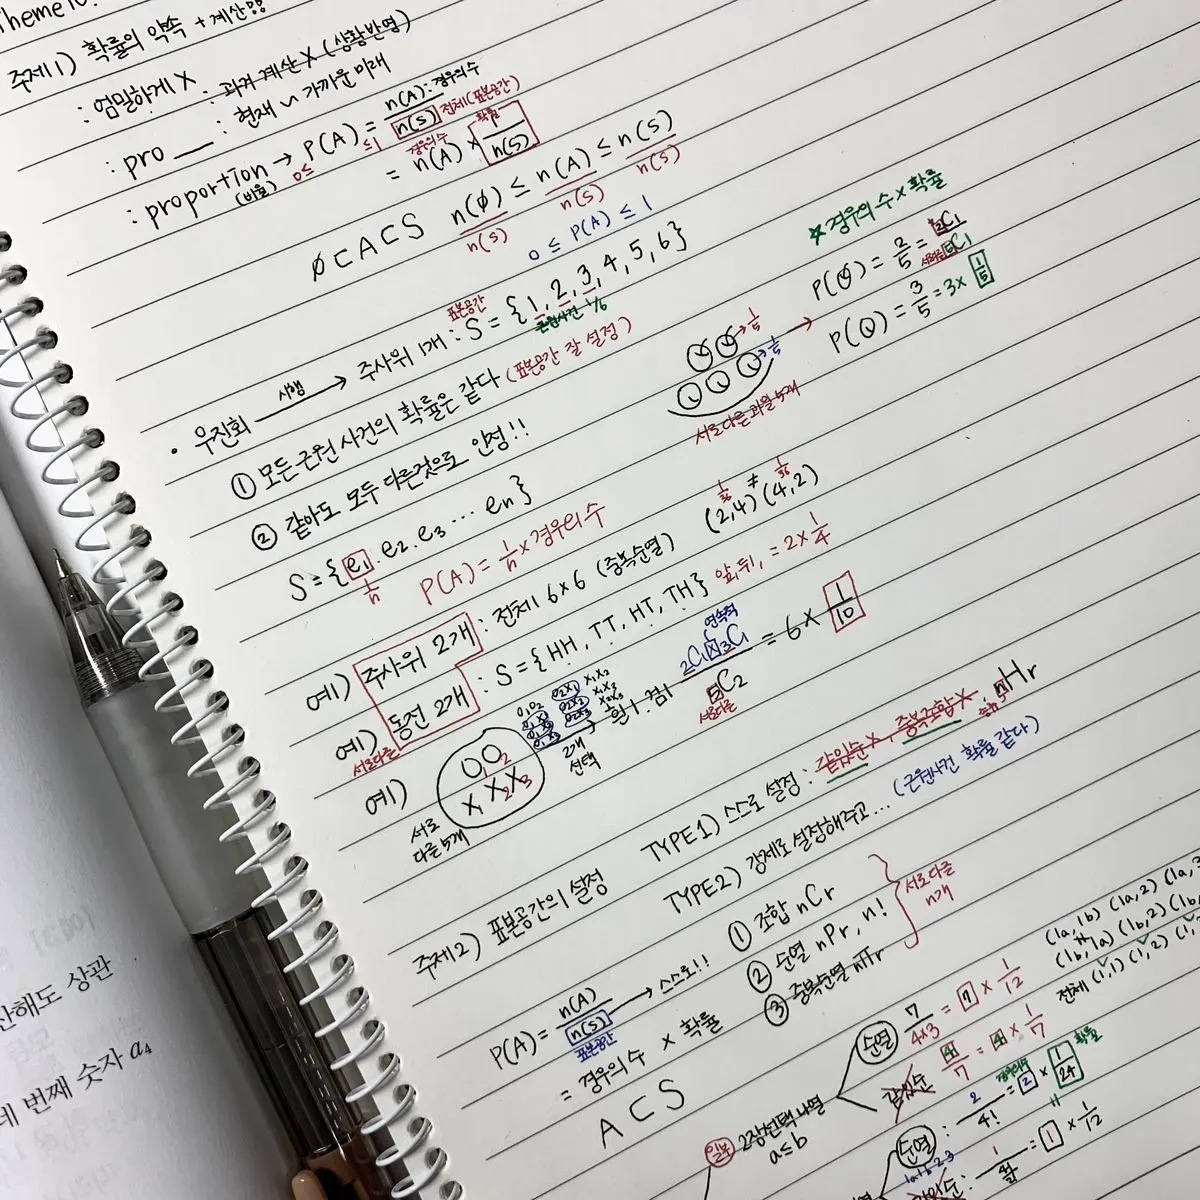 Theme 10.
주제1) 확률의 약속 + 계산방
: 엄밀하게 X : 과거 계산 X (상황반영)
: 현재 ~ 가까운 미래
: pro
: proportion → P(A) = n(A) : 경우의 수 / n(S) 전체(표본공간)
(비율) 0≤ ≤1
= n(A) × 1/n(S)
경우의수 확률
∅ ⊂ A ⊂ S n(∅)/n(S) ≤ n(A)/n(S) ≤ n(S)/n(S)
0 ≤ P(A) ≤ 1
표본공간
시행 → 주사위 1개 : S = {1, 2, 3, 4, 5, 6}
근원사건 1/6
① 모든 근원사건의 확률은 같다 (표본공간 잘 설정)
② 같아도 모두 다른것으로 인정!!
S = {e1, e2, e3 ... en}
1/n
P(A) = 1/n × 경우의 수
★ 경우의 수 × 확률
= 2/5 = 2C1/5C1
= 3/5 = 3 × 1/5
→ 1/5
→ 1/5
서로다른 과일 5개
예) 주사위 2개 : 전체 6×6 (중복순열) (2,4) ≠ (4,2)
1/36 1/36
예) 동전 2개 : S = {HH, TT, HT, TH} 앞, 뒤, = 2 × 1/4
서로다른
예) O1O2 X1X2X3
서로 다른 5개
O1O2 O2X1 X1X2
O1X1 O2X2 X1X3
O1X2 O2X3 X2X3
O1X3
2개 선택
2C1 × 3C1 / 5C2 = 6 × 1/10
연속적
서로다른
주제2) 표본공간의 설정 TYPE1) 스스로 설정 : 같있순 X, 중복조합 X nHr
TYPE2) 강제로 설정해주고... (근원사건 확률 같다)
P(A) = n(A)/n(S) → 스스로!!
표본공간
= 경우의 수 × 확률
A ⊂ S
① 조합 nCr
② 순열 nPr, n!
③ 중복순열 nΠr
서로다른 n개
(1a, 1b) (1a, 2) (1a, 3
(1b, 1a) (1b, 2) (1b,
전체 (1,1) (1,2) (1,
일부 2장선택 나열
a≤b
순열 7/4×3 = 7 × 1/12
같있순 4/7 = 4 × 1/7
순열 : 2/4! = 2 × 1/24
경우의수 확률
= 1 × 1/12
산해도 상관
네 번째 숫자 a4